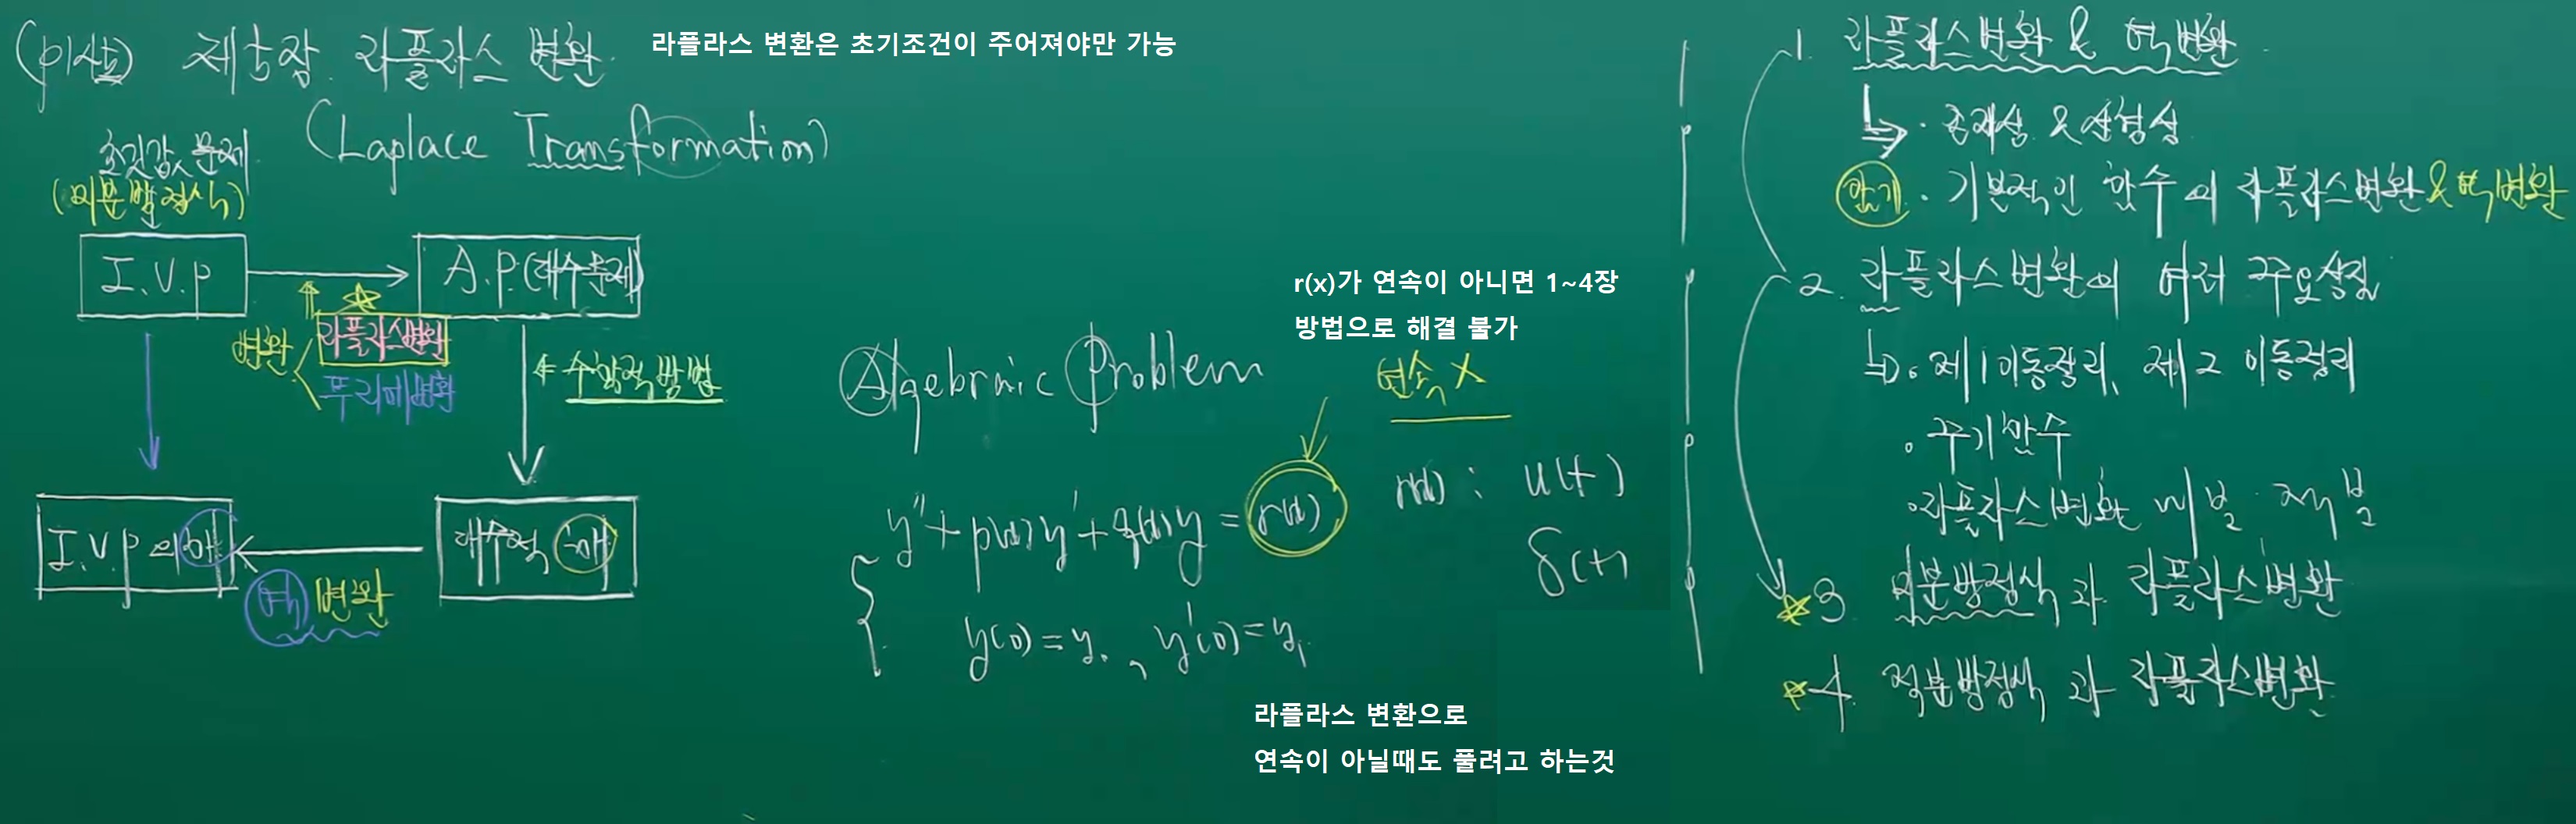 제5장 라플라스 변환
라플라스 변환은 초기조건이 주어져야만 가능
(Laplace Transformation)
초깃값 문제
(미분방정식)
I.V.P
A.P.(대수문제)
변환
라플라스변환
푸리에변환
⇐ 수학적방법
I.V.P의 해
대수적 해
역변환
Algebraic Problem
r(x)가 연속이 아니면 1~4장
방법으로 해결 불가
연속 X
y''+p(x)y'+q(x)y=r(x)
r(x) : u(t)
δ(t)
y(0)=y₀, y'(0)=y₁
라플라스 변환으로
연속이 아닐때도 풀려고 하는것
1. 라플라스변환 & 역변환
· 존재성 & 선형성
암기 · 기본적인 함수의 라플라스변환 & 역변환
2. 라플라스변환의 여러 주요성질
· 제1이동정리, 제2이동정리
· 주기함수
· 라플라스변환 미분·적분
3. 미분방정식과 라플라스변환
4. 적분방정식과 라플라스변환